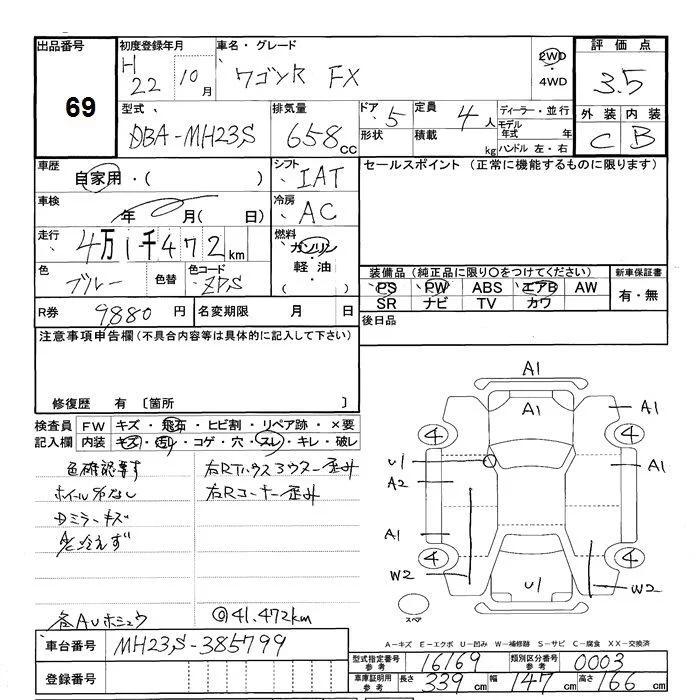 出品番号
69
初度登録年月
H 22 10月
車名・グレード
ワゴンR FX
2WD・4WD
評価点
3.5
型式
DBA-MH23S
排気量
658cc
ドア 5
形状
定員 4人
積載 kg
ディーラー・並行
モデル年式 年
ハンドル 左・右
外装 内装
C B
車歴
自家用・( )
シフト
IAT
セールスポイント（正常に機能するものに限ります）
車検
年 月( 日)
冷房
AC
走行
4万1千472km
燃料
ガソリン・軽油・( )
色
ブルー
色替
色コード
装備品（純正品に限り〇をつけてください）
PS PW ABS エアB AW
SR ナビ TV カワ
新車保証書
有・無
R券 9,880円
名変期限 月 日
後日品
注意事項申告欄(不具合内容等は具体的に記入して下さい)
修復歴 有 〔箇所 〕
検査員記入欄
FW キズ・飛石・ヒビ割・リペア跡・×要
内装 キズ・汚レ・コゲ・穴・スレ・キレ・破レ
色確認要す
ホイールカバーなし
Dミラーキズ
A/C冷えず
右Rタイヤハウスインナー歪み
右Rコーナー歪み
◎41,472km
A1
A1
A1
4
4
U1
A2
A1
A1
4
4
W2
U1
W2
スペア
A-キズ E-エクボ U-凹み W-補修跡 S-サビ C-腐食 XX-交換済
車台番号
MH23S-385799
登録番号
型式指定番号 参考 16169
類別区分番号 参考 0003
車庫証明用 参考 長さ 339cm 幅 147cm 高さ 166cm